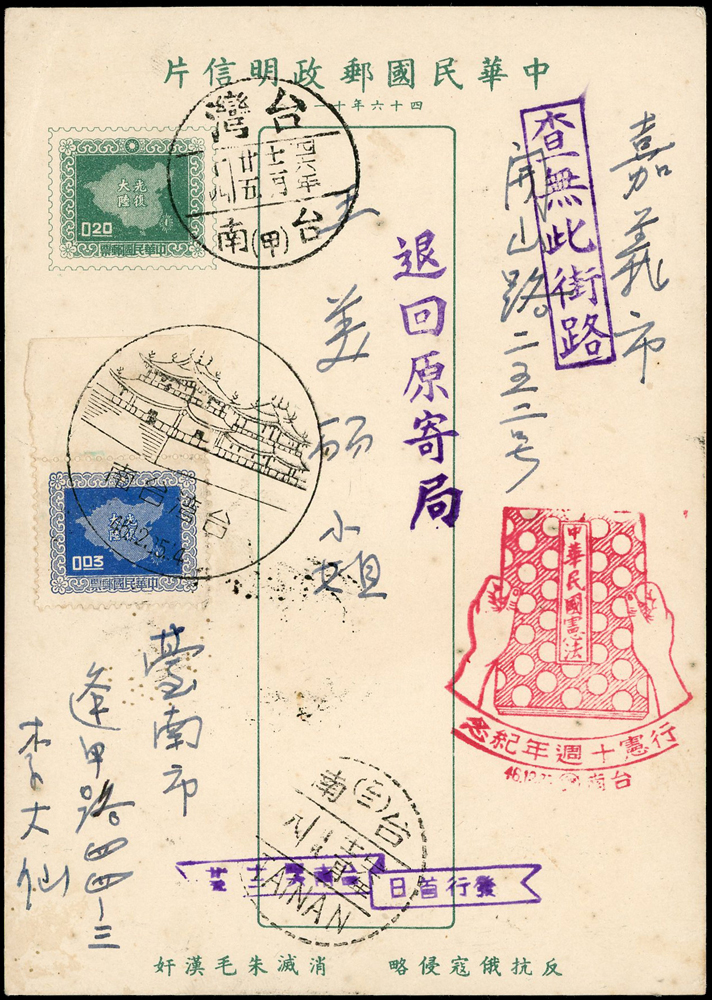 中華民國郵政明信片
四十六年十一
光復大陸
0.20
中華民國郵票
台灣
四六年
十二月
廿五
台(甲)南
嘉義市
開山路二五二号
查無此街路
王美丽小姐
退回原寄局
台湾台南
46.12.25.4
光復大陸
0.03
中華民國郵票
中華民國憲法
行憲十週年紀念
台南
臺南市
逢甲路四四-三
李大仙
台(三)南
TAINAN
發行首日
反抗俄寇侵略
消滅朱毛漢奸